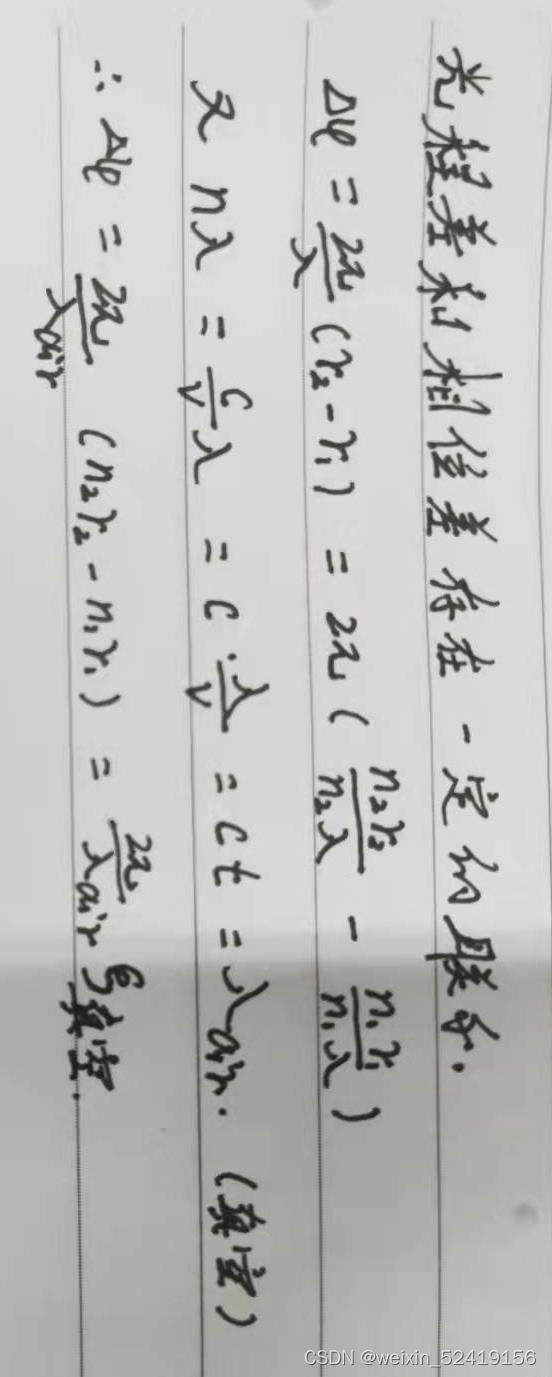 光程差和相位差存在一定的联系.
Δφ = 2π/λ (r₂ - r₁) = 2π ( n₂r₂/n₂λ - n₁r₁/n₁λ )
又 nλ = c/v λ = c · λ/v = ct = λair. (真空)
∴ Δφ = 2π/λair (n₂r₂ - n₁r₁) = 2π/λair δ真空.
CSDN @weixin_52419156